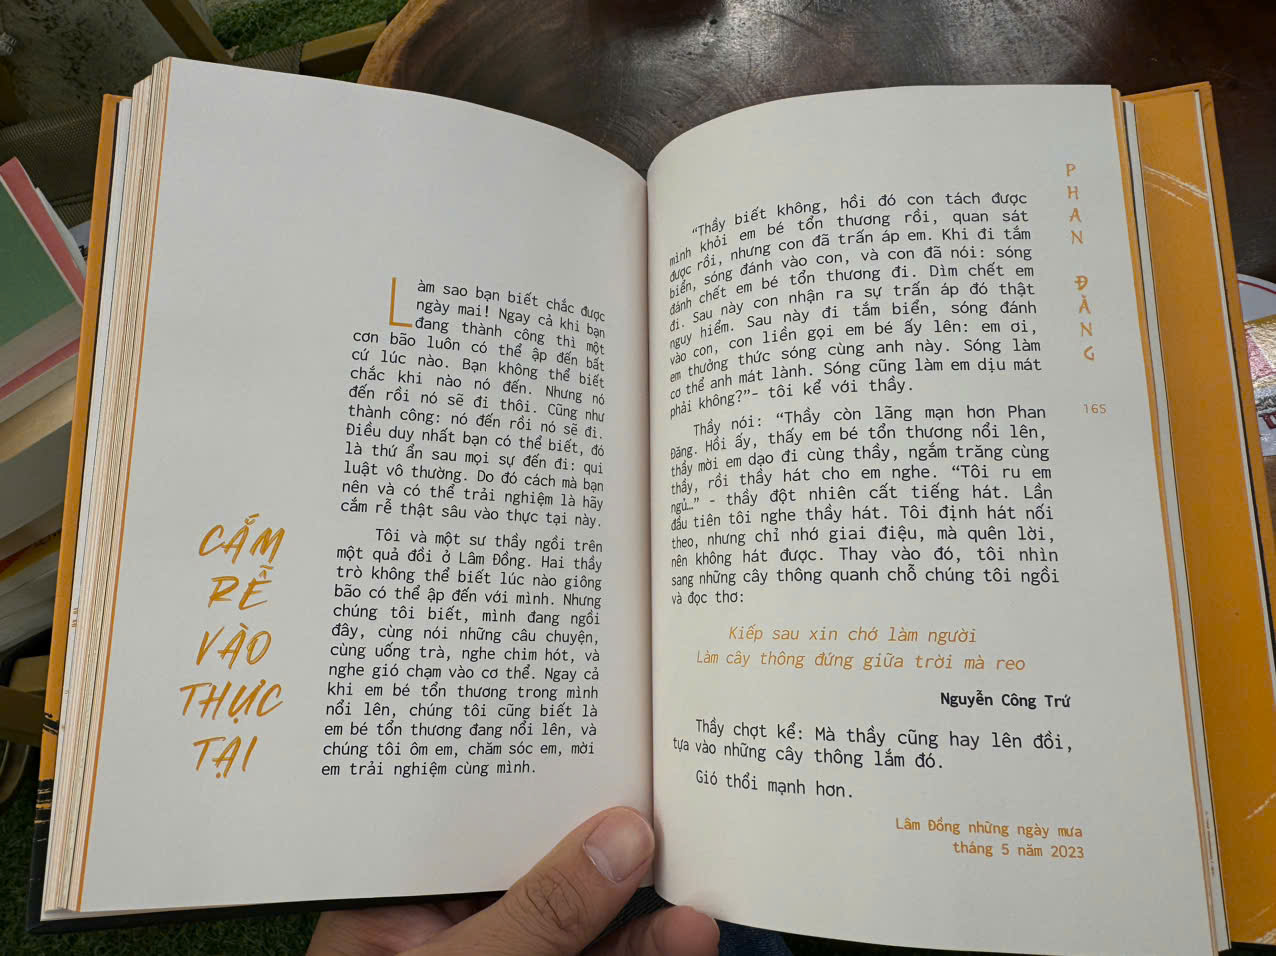 CẮM
RỄ
VÀO
THỰC
TẠI
Làm sao bạn biết chắc được
ngày mai! Ngay cả khi bạn
đang thành công thì một
cơn bão luôn có thể ập đến bất
cứ lúc nào. Bạn không thể biết
chắc khi nào nó đến. Nhưng nó
đến rồi nó sẽ đi thôi. Cũng như
thành công: nó đến rồi nó sẽ đi.
Điều duy nhất bạn có thể biết, đó
là thứ ẩn sau mọi sự đến đi: qui
luật vô thường. Do đó cách mà bạn
nên và có thể trải nghiệm là hãy
cắm rễ thật sâu vào thực tại này.
Tôi và một sư thầy ngồi trên
một quả đồi ở Lâm Đồng. Hai thầy
trò không thể biết lúc nào giông
bão có thể ập đến với mình. Nhưng
chúng tôi biết, mình đang ngồi
đây, cùng nói những câu chuyện,
cùng uống trà, nghe chim hót, và
nghe gió chạm vào cơ thể. Ngay cả
khi em bé tổn thương trong mình
nổi lên, chúng tôi cũng biết là
em bé tổn thương đang nổi lên, và
chúng tôi ôm em, chăm sóc em, mời
em trải nghiệm cùng mình.
“Thầy biết không, hồi đó con tách được
mình khỏi em bé tổn thương rồi, quan sát
được rồi, nhưng con đã trấn áp em. Khi đi tắm
biển, sóng đánh vào con, và con đã nói: sóng
đánh chết em bé tổn thương đi. Dìm chết em
đi. Sau này con nhận ra sự trấn áp đó thật
nguy hiểm. Sau này đi tắm biển, sóng đánh
vào con, con liền gọi em bé ấy lên: em ơi,
em thưởng thức sóng cùng anh này. Sóng làm
cơ thể anh mát lành. Sóng cũng làm em dịu mát
phải không?”- tôi kể với thầy.
Thầy nói: “Thầy còn lãng mạn hơn Phan
Đăng. Hồi ấy, thấy em bé tổn thương nổi lên,
thầy mời em dạo đi cùng thầy, ngắm trăng cùng
thầy, rồi thầy hát cho em nghe. “Tôi ru em
ngủ…” - thầy đột nhiên cất tiếng hát. Lần
đầu tiên tôi nghe thầy hát. Tôi định hát nối
theo, nhưng chỉ nhớ giai điệu, mà quên lời,
nên không hát được. Thay vào đó, tôi nhìn
sang những cây thông quanh chỗ chúng tôi ngồi
và đọc thơ:
Kiếp sau xin chớ làm người
Làm cây thông đứng giữa trời mà reo
Nguyễn Công Trứ
Thầy chợt kể: Mà thầy cũng hay lên đồi,
tựa vào những cây thông lắm đó.
Gió thổi mạnh hơn.
Lâm Đồng những ngày mưa
tháng 5 năm 2023
PHAN ĐĂNG
165